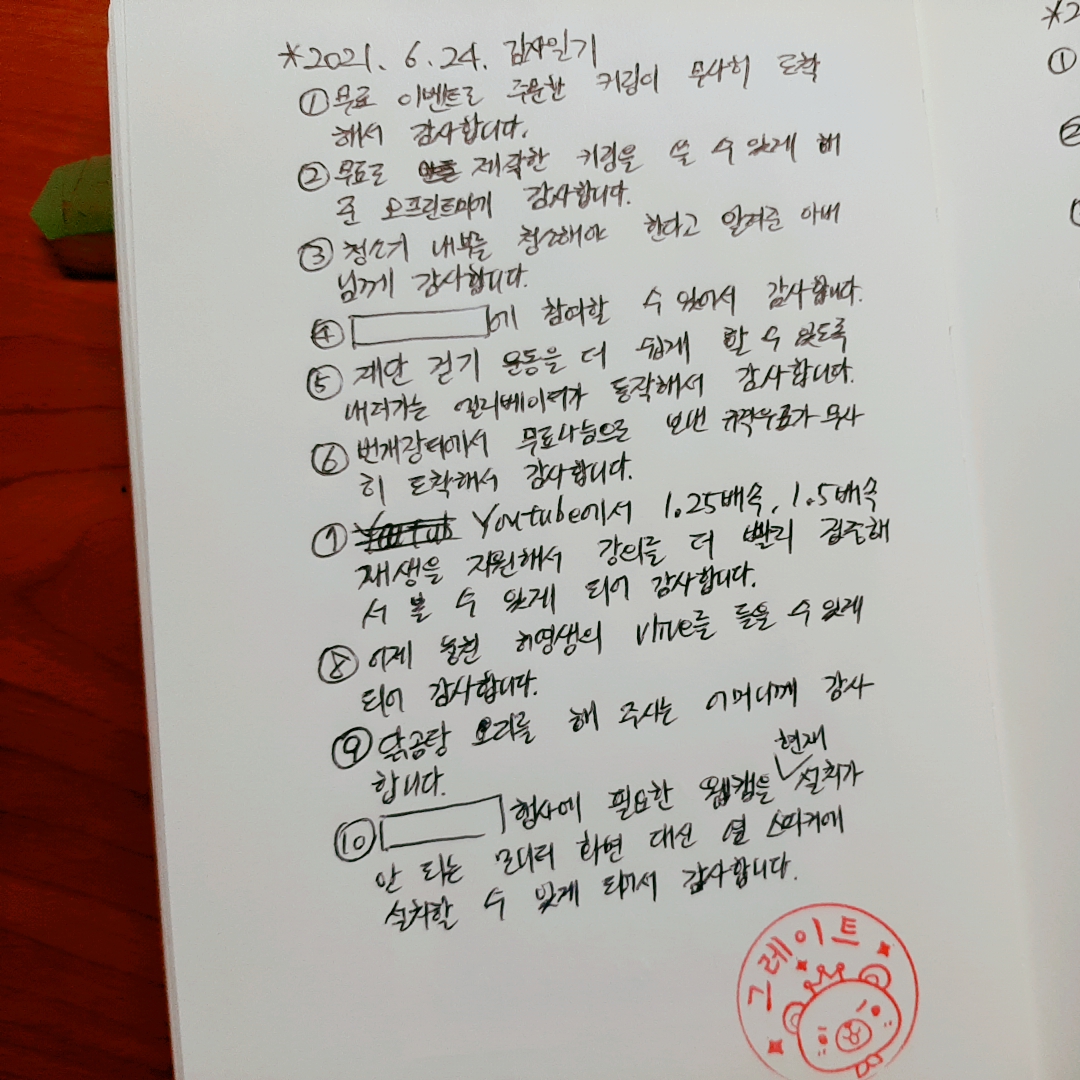 *2021. 6. 24. 감사일기
① 무료 이벤트로 주문한 키링이 무사히 도착
해서 감사합니다.
② 무료로 제작한 키링을 쓸 수 있게 해
준 오프린트미께 감사합니다.
③ 청소기 내부를 청소해야 한다고 알려준 아버
님께 감사합니다.
④ 에 참여할 수 있어서 감사합니다.
⑤ 제안 걷기 운동을 더 쉽게 할 수 있도록
내려가는 엘리베이터가 동작해서 감사합니다.
⑥ 번개장터에서 무료나눔으로 보낸 규격우표가 무사
히 도착해서 감사합니다.
⑦ Youtube에서 1.25배속, 1.5배속
재생을 지원해서 강의를 더 빨리 집중해
서 볼 수 있게 되어 감사합니다.
⑧ 어제 출현 허영생의 vlive를 들을 수 있게
되어 감사합니다.
⑨ 닭곰탕 요리를 해 주시는 어머니께 감사
합니다.
⑩ 행사에 필요한 웹캠을 현재 설치가
안 되는 모니터 화면 대신 옆 스피커에
설치할 수 있게 되어서 감사합니다.
그레이트
*2
①
②